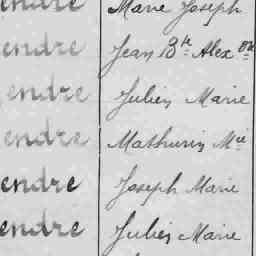 endre Marie Joseph
endre Jean Bte Alex dre
endre Julien Marie
endre Mathurin Mie
endre Joseph Marie
endre Julien Marie